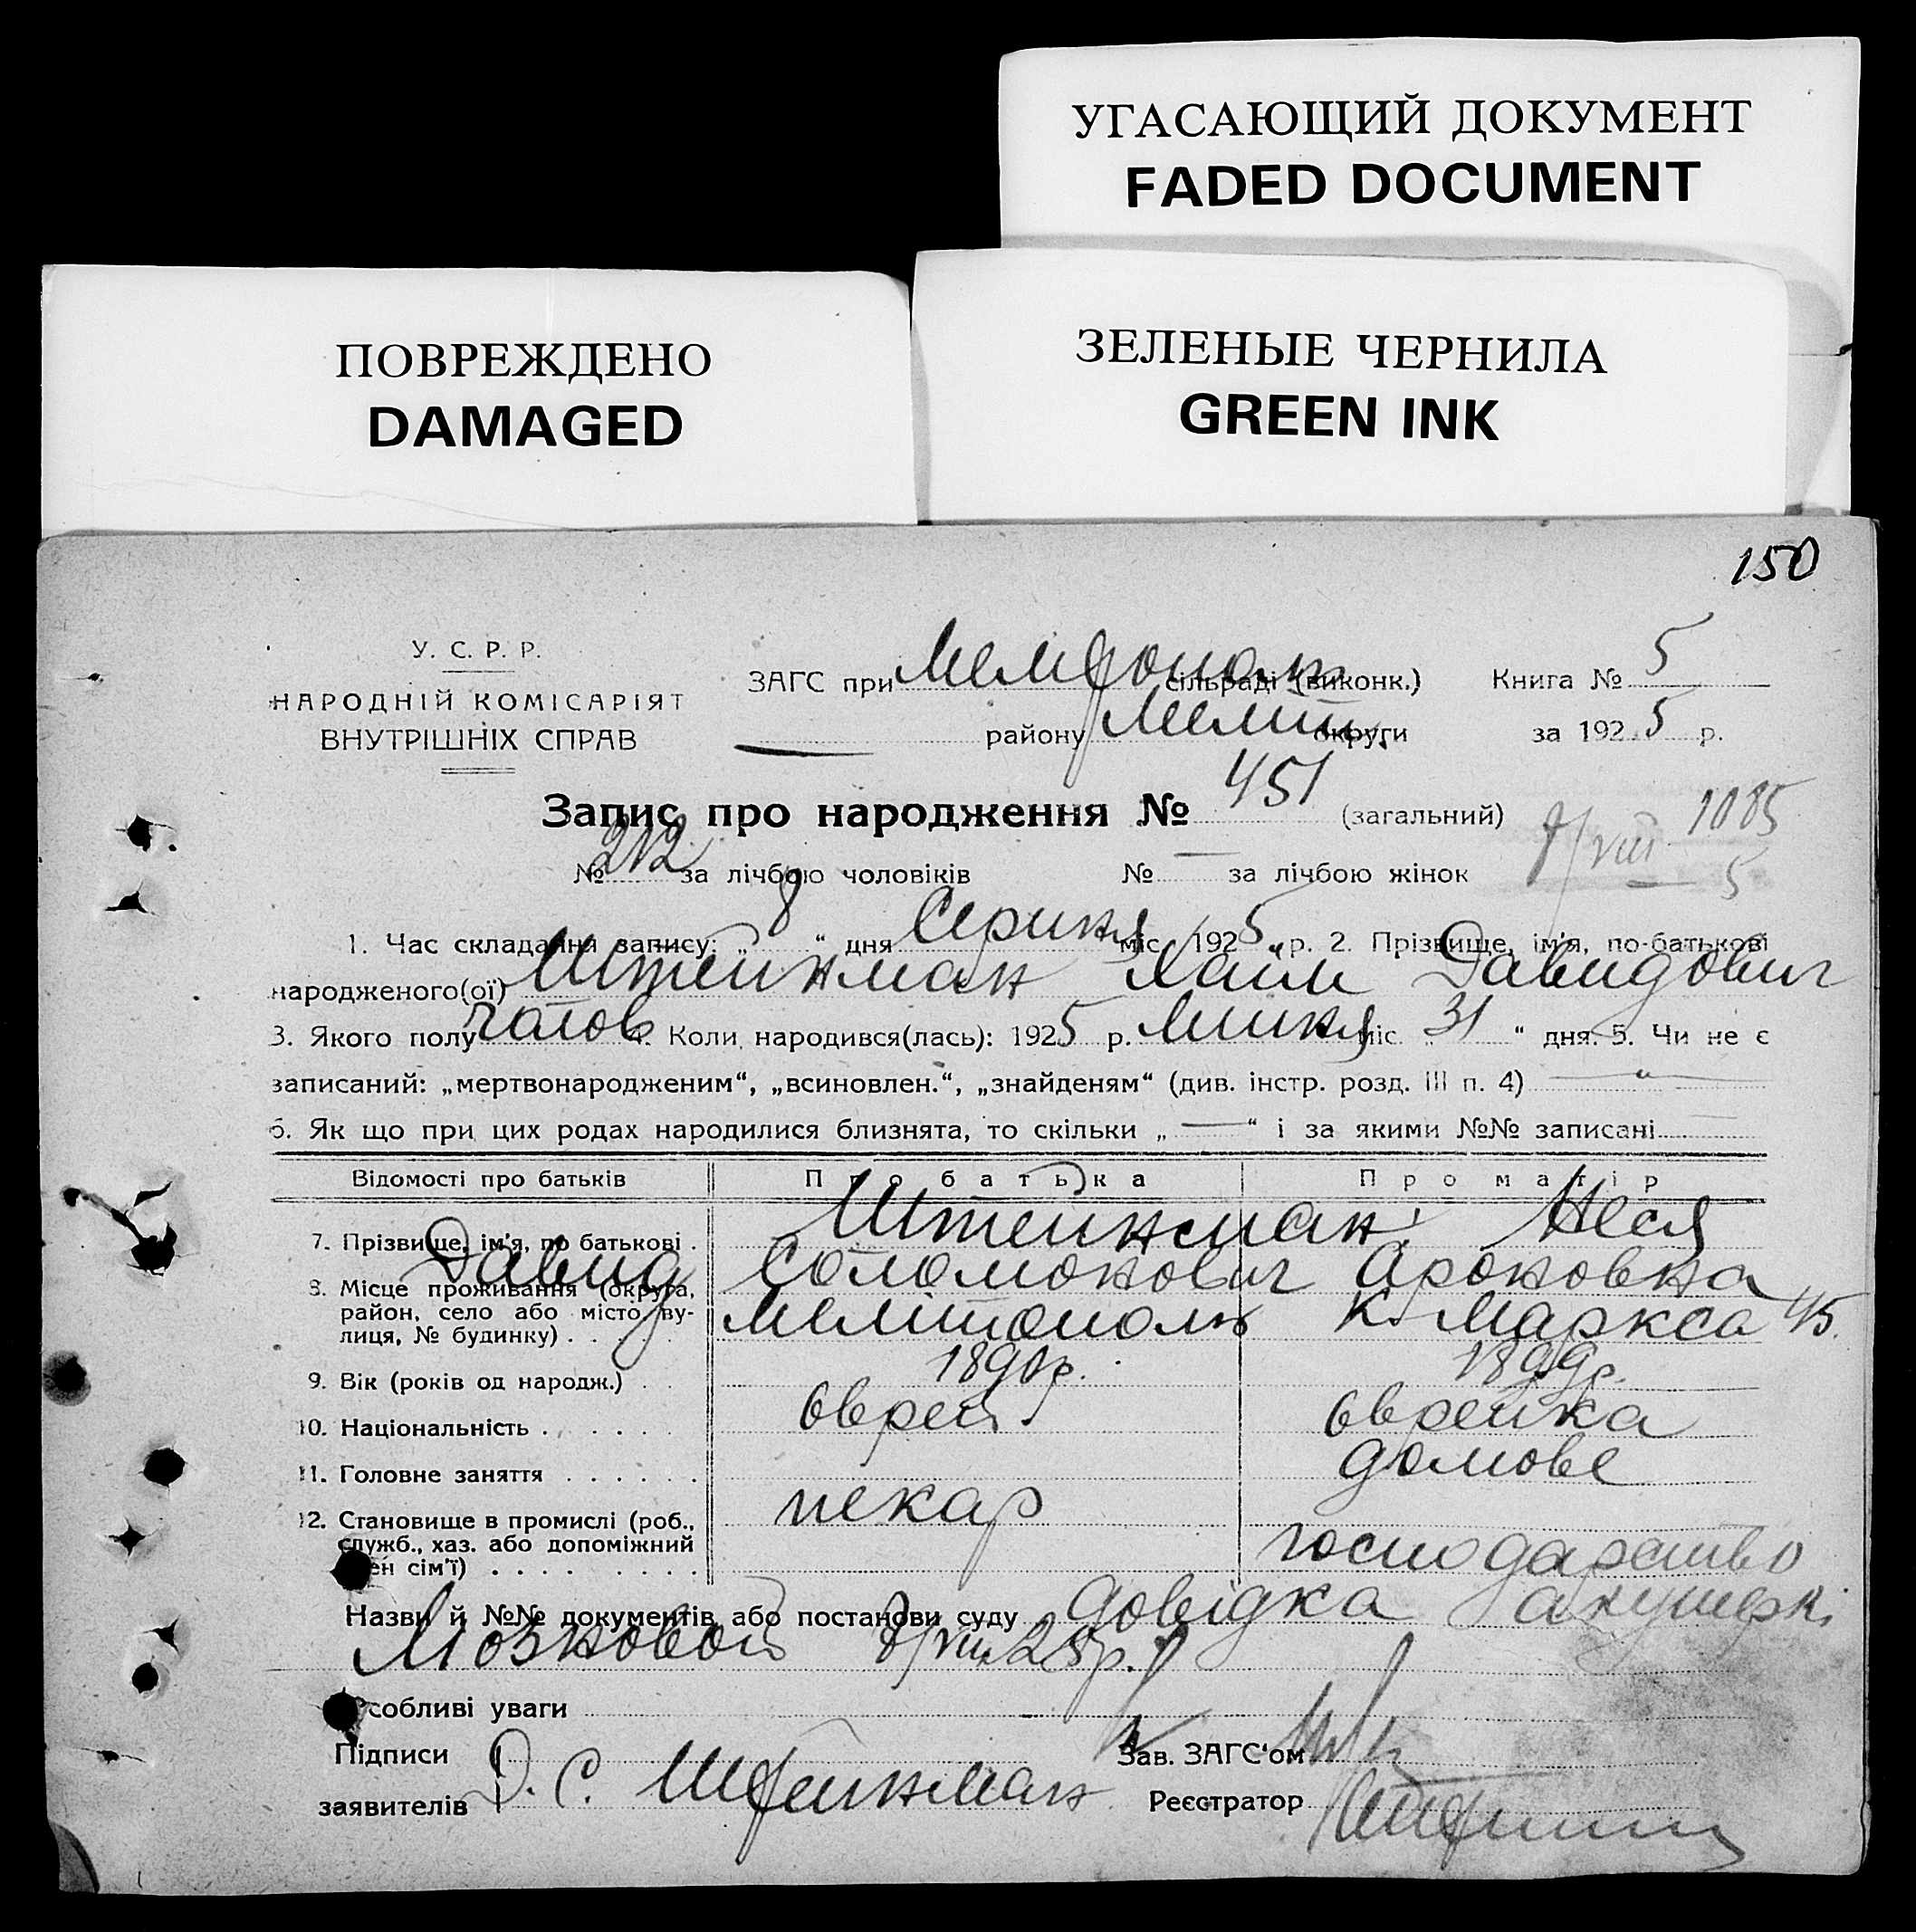 УГАСАЮЩИЙ ДОКУМЕНТ
FADED DOCUMENT
ПОВРЕЖДЕНО
DAMAGED
ЗЕЛЕНЫЕ ЧЕРНИЛА
GREEN INK
150
У. С. Р. Р.
НАРОДНІЙ КОМІСАРІЯТ
ВНУТРІШНІХ СПРАВ
ЗАГС при сільраді (виконк.) Книга № 5
району Меліт. округи за 1925 р.
Запис про народження № 451 (загальний)
1085
8/VIII 5
№ 212 за лічбою чоловіків № — за лічбою жінок
1. Час складання запису: „8“ дня Серпня міс. 1925 р. 2. Прізвище, ім'я, по-батькові
народженого(ої) Штейнман Хаїм Давидович
3. Якого полу чолов 4. Коли народився(лась): 1925 р. Липня міс. 31 “ дня. 5. Чи не є
записаний: „мертвонародженим“, „всиновлен.“, „знайденям“ (див. інстр. розд. III п. 4) — “ —
6. Як що при цих родах народилися близнята, то скільки „—“ і за якими №№ записані
Відомості про батьків Про батька Про матір
7. Прізвище, ім'я, по батькові . Штейнман Неся
Давид Соломонович Ароновна
8. Місце проживання (округа, район, село або місто, вулиця, № будинку) . . . . . Мелітополь К. Маркса 45.
9. Вік (років од народж.) . . 189 р. 1899р.
10. Національність . . . . . . еврей еврейка
11. Головне заняття . . . . . . пекар домове
12. Становище в промислі (роб.,
служб., хаз. або допоміжний господарство
ен сім'ї) . . . . . . . . .
Назви й №№ документів або постанови суду довідка акушерки
Мозновой 8/VIII 25р.
собливі уваги
Підписи Зав. ЗАГС‘ом
заявителів Д. С. Штейнман Реєстратор